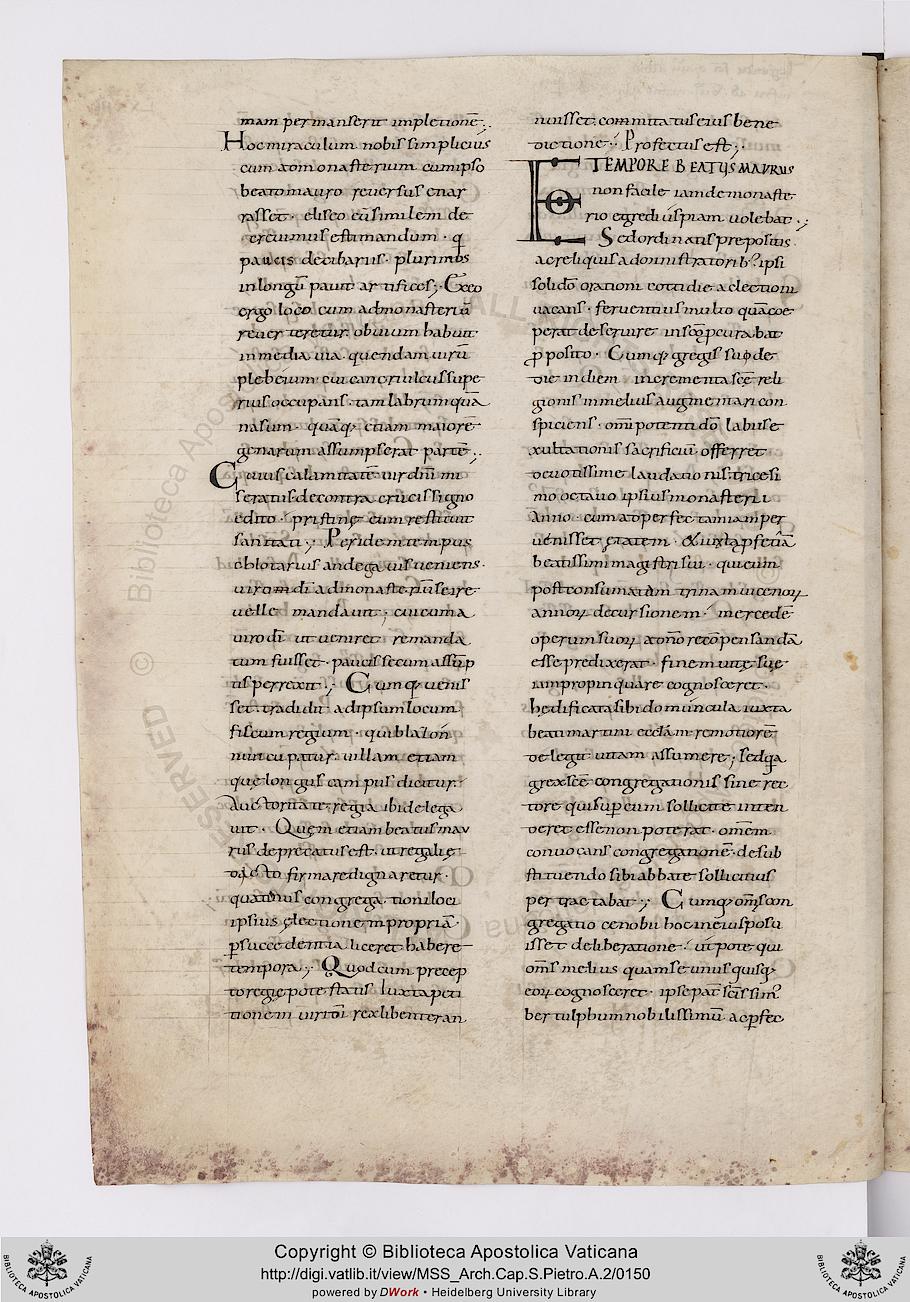 mam permanserit impletionē.
Hoc miraculum nobis simplicius
cum ad monasterium cum ipso
beato mauro reversus enar
rasset. eliseo eū similem de
crevimus estimandum. q
paucis decibariis. plurimos
in longū pavit artifices; Ex eo
ergo loco cum ad monasteriū
reverteretur. obvium habuit
in media via. quendam virū
plebeium. cui cancri ulcus supe
rius occupans. tam labrum quā
nasum. quāq; etiam maiorē
genarum assumpserat partē.
Cuius calamitatē vir dnī mi
seratus. de contra crucis signo
edito. pristinę eum restituit
sanitati; Per idem tempus
eblotarius andegavis veniens.
viro dī ad monasteriū se ire
velle mandavit; cui cum a
viro dī ut veniret remanda
tum fuisset. paucis secum assūp
tis perrexit; Cumq; venis
set. tradidit ad ipsum locum
fiscum regium. qui blazon
nuncupatur. villam etiam
que longus campus dicitur.
Auctoritate regia ibi delega
vit. Quem etiam beatus mau
rus deprecatus est. ut regali
edicto firmare dignaretur.
quatinus congregationi loci
ipsius electionem propriā.
p succedentia liceret habere
tempora; Quod cum precep
to regię potestatis. Iuxta peti
tionem viri dī rex libenter an
nuisset. commitatus eius bene
dictione. Profectus est;
E TEMPORE BEATUS MAURUS
non facile iam de monaste
rio egredi uspiam volebat.;
Sed ordinatis prepositis
ac reliquis administratorib;. ipsi
solidō orationi cottidie ac lectioni
vacans. ferventius multo quā coe
perat deservire in scō p curabat
pposito. Cumq; gregis sui de
die in diem incrementa scē reli
gionis in melius augmentari con
spiciens. omīpotenti dō laudis e
xultationis sacrificiū offerret
devotissime laudationis. tricesi
mo octavo ipsius monasterii
Anno. cum ad perfectam iam per
venisset ętatem. & iuxta pfetiā
beatissimi magistri sui. qui eum
post consumatam trinam vicenorum
annorum decursionem. mercedē
operum suorum a dnō recōpensandā
esse predixerat. finem vitę suę
iam propinquare cognosceret.
hędificata sibi domuncula iuxta
beati martini ecclām. remotiorē
delegit vitam assumere; sed qa
grex scē congregationis sine rec
tore qui sup eum sollicite inten
deret esse non poterat. omēm
convocans congregationē. de sub
stituendo sibi abbate sollicitius
pertractabat; Cumq; omīs con
gregatio cenobii hoc in eius posu
isset deliberatione. utpote qui
omīs melius quam se unusquisq;
eorum cognosceret. ipse pat scīs sim
bertulphum nobilissimū ac pfec
Copyright © Biblioteca Apostolica Vaticana
http://digi.vatlib.it/view/MSS_Arch.Cap.S.Pietro.A.2/0150
powered by DWork • Heidelberg University Library
BIBLIOTECA APOSTOLICA VATICANA
BIBLIOTECA APOSTOLICA VATICANA